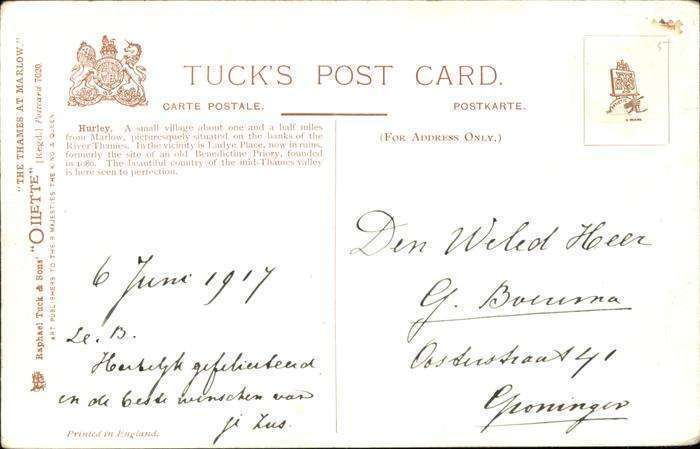 TUCK'S POST CARD.
CARTE POSTALE.
POSTKARTE.
(FOR ADDRESS ONLY.)
Hurley. A small village about one and a half miles
from Marlow, picturesquely situated on the banks of the
River Thames. In the vicinity is Ladye Place, now in ruins,
formerly the site of an old Benedictine Priory, founded
in 1086. The beautiful country of the mid-Thames valley
is here seen to perfection.
"THE THAMES AT MARLOW."
Raphael Tuck & Sons' "OILETTE" [Regd.] Postcard 7020.
ART PUBLISHERS TO THEIR MAJESTIES THE KING & QUEEN.
6 Juni 1917
Le. B.
Hartelijk gefeliciteerd
en de beste wenschen van
je Zus.
Printed in England.
Den Weled Heer
G. Boerema
Oosterstraat 41
Groningen